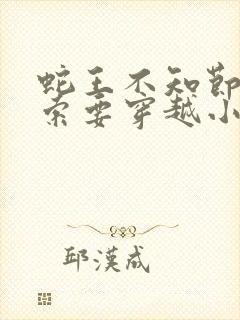 蛇王不知节
索要穿越小
邱汉成